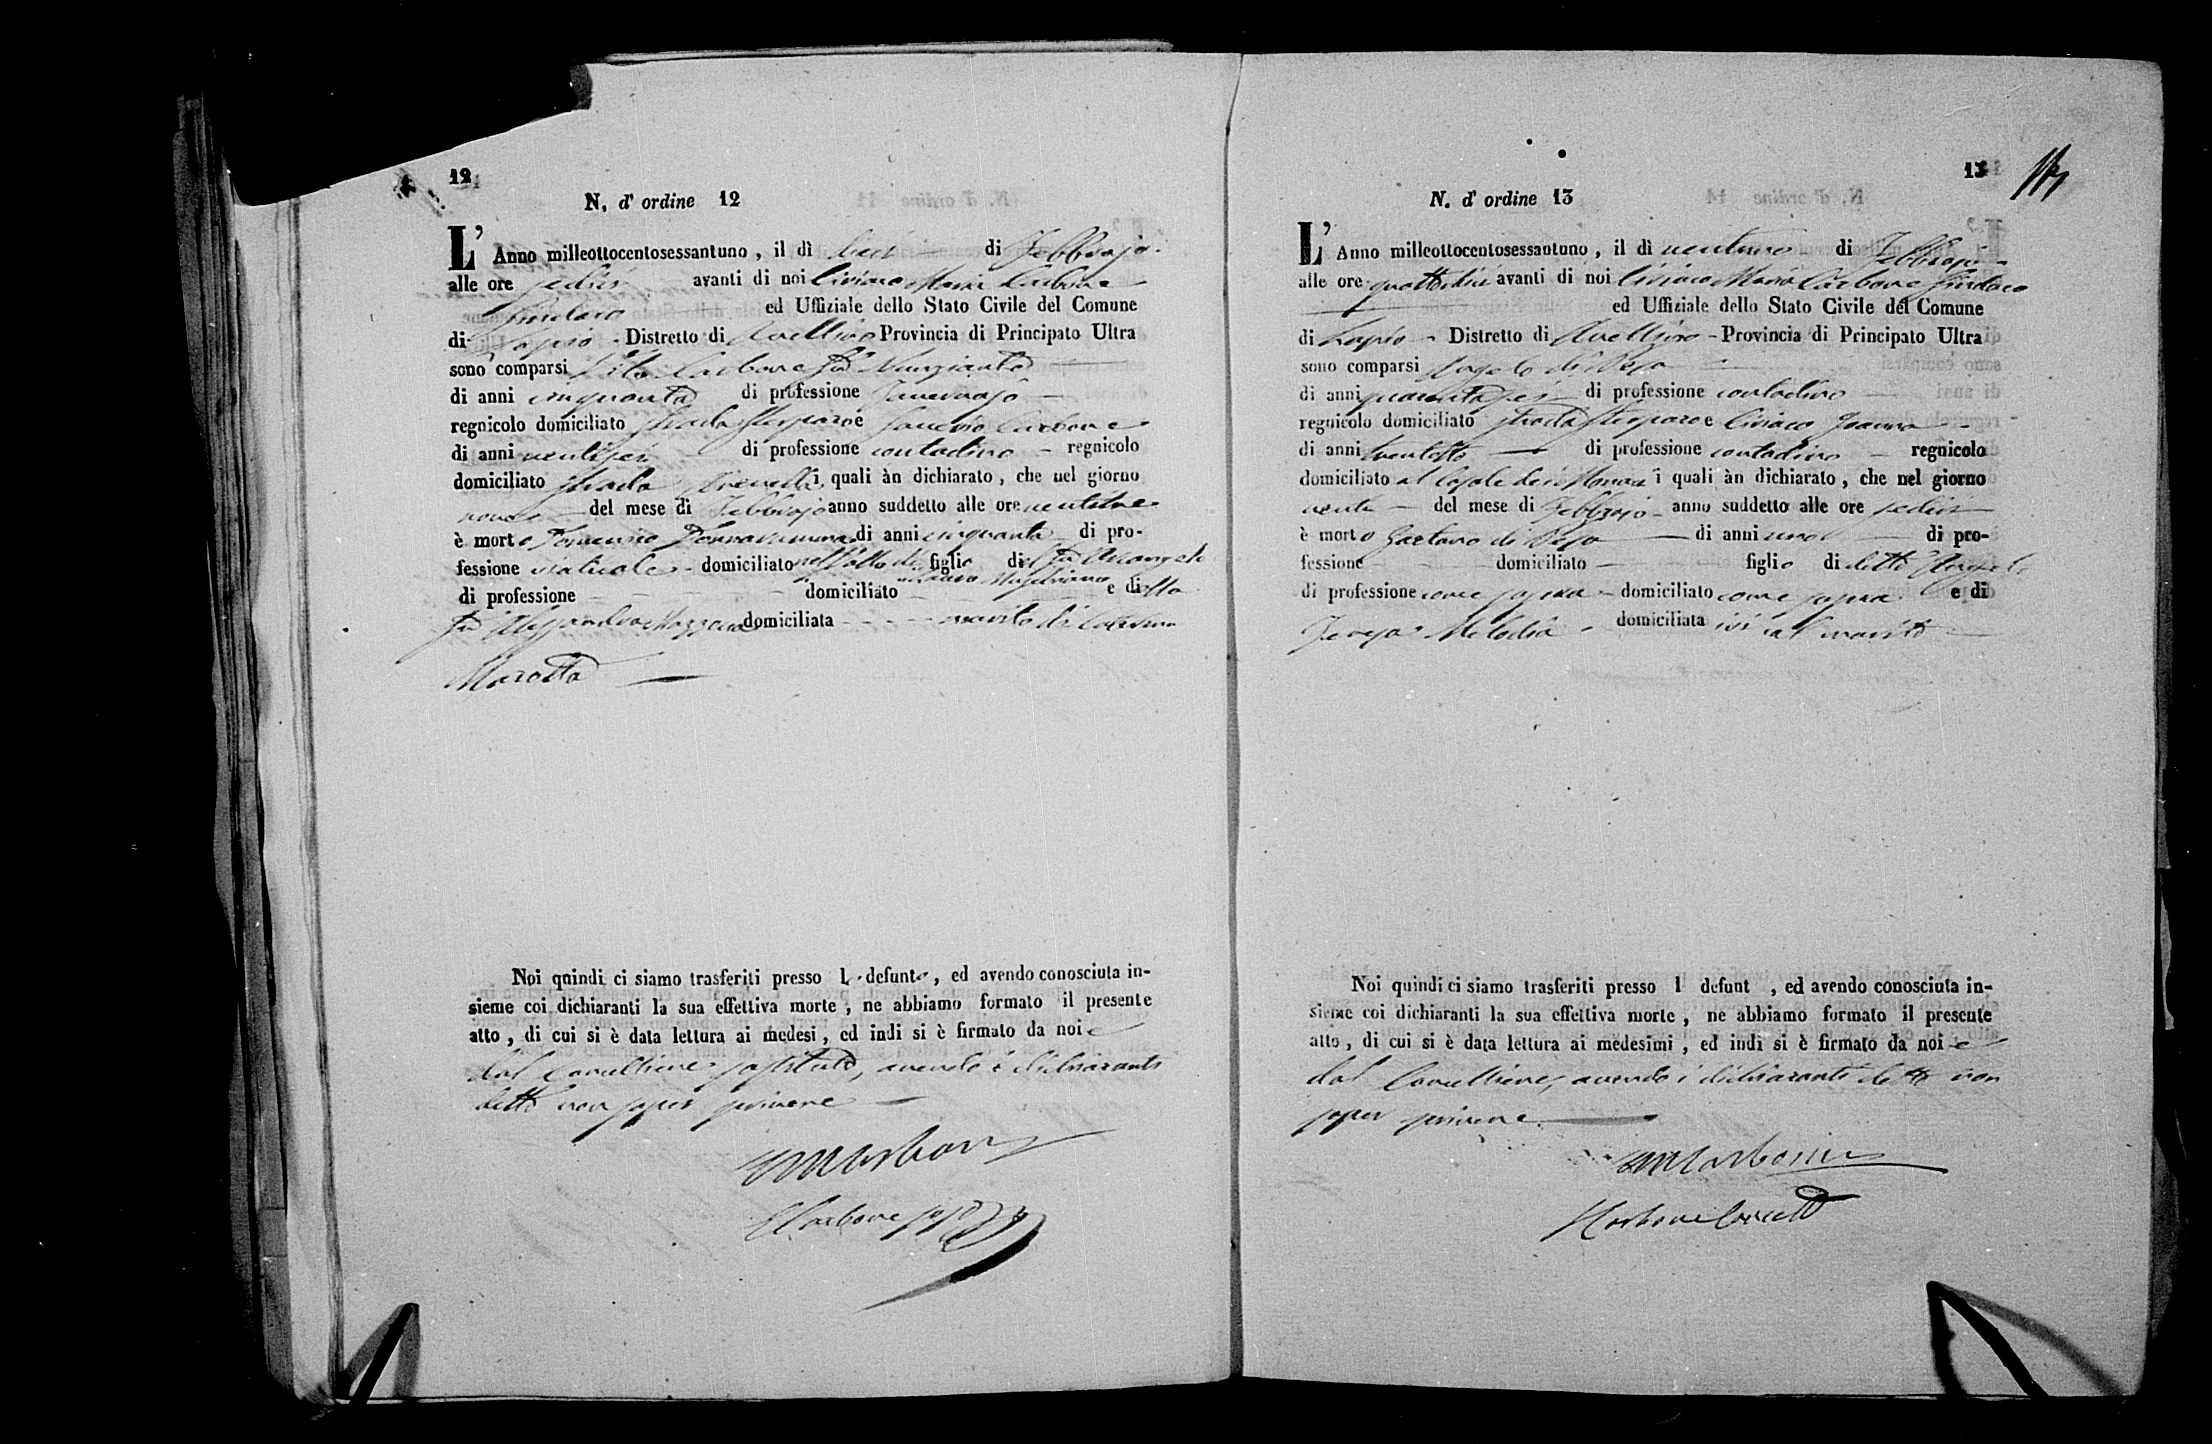 12
N. d' ordine 12
L' Anno milleottocentosessantuno, il dì dieci di Febbrajo
alle ore sedici avanti di noi Ciriaco Maria Carbone
Sindaco ed Uffiziale dello Stato Civile del Comune
di Lapio Distretto di Avellino Provincia di Principato Ultra
sono comparsi Vito Carbone fu Nunziante
di anni cinquanta di professione
regnicolo domiciliato strada e Saverio Carbone
di anni ventisei di professione contadino regnicolo
domiciliato strada i quali àn dichiarato, che nel giorno
nove del mese di Febbrajo anno suddetto alle ore ventitre
è morto di anni cinquanta di pro-
fessione domiciliato figlio di fu Arcangelo
di professione domiciliato e di
fu domiciliata marito di
Marotta
Noi quindi ci siamo trasferiti presso lo defunto, ed avendo conosciuta in-
sieme coi dichiaranti la sua effettiva morte, ne abbiamo formato il presente
atto, di cui si è data lettura ai medesi, ed indi si è firmato da noi e
dal Cancelliere sostituto, avendo i dichiaranti
detto non saper scrivere
CMCarbone
Carbone
13
N. d' ordine 13
L' Anno milleottocentosessantuno, il dì ventuno di Febbrajo
alle ore quattordici avanti di noi Ciriaco Maria Carbone Sindaco
ed Uffiziale dello Stato Civile del Comune
di Lapio Distretto di Avellino Provincia di Principato Ultra
sono comparsi Angelo di
di anni quarantasei di professione contadino
regnicolo domiciliato strada e Ciriaco
di anni ventotto di professione contadino regnicolo
domiciliato al Casale i quali àn dichiarato, che nel giorno
venti del mese di Febbrajo anno suddetto alle ore sedici
è morto Gaetano di di anni uno di pro-
fessione domiciliato figlio di detto Angelo
di professione come sopra domiciliato come sopra e di
Teresa Melodia domiciliata ivi col marito
Noi quindi ci siamo trasferiti presso l defunt , ed avendo conosciuta in-
sieme coi dichiaranti la sua effettiva morte, ne abbiamo formato il presente
atto, di cui si è data lettura ai medesimi, ed indi si è firmato da noi e
dal Cancelliere, avendo i dichiaranti detto non
saper scrivere
CMCarbone
Carbone